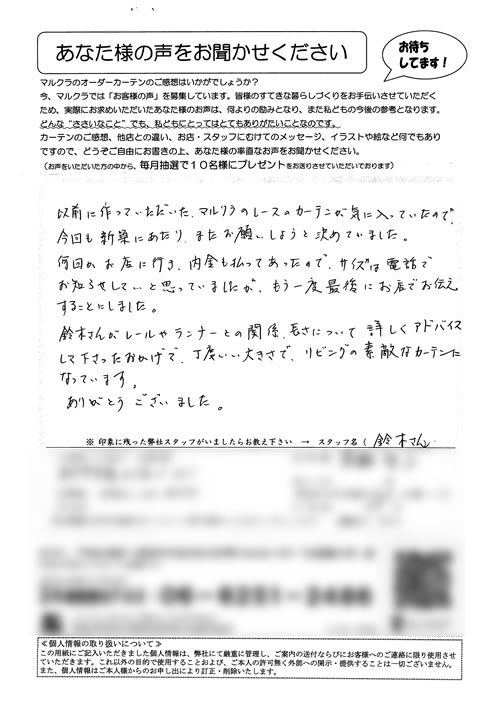 あなた様の声をお聞かせください
お待ち
してます！
マルクラのオーダーカーテンのご感想はいかがでしょうか？
今、マルクラでは「お客様の声」を募集しています。皆様のすてきな暮らしづくりをお手伝いさせていただく
ため、実際にお求めいただいたあなた様のお声は、何よりの励みとなり、また私どもの今後の参考となります。
どんな“ささいなこと”でも、私どもにとってはとてもありがたいことなのです。
カーテンのご感想、他店との違い、お店・スタッフにむけてのメッセージ、イラストや絵など何でもあり
ですので、どうぞご自由にお書きの上、あなた様の率直なお声をお聞かせください。
（お声をいただいた方の中から、毎月抽選で１０名様にプレゼントをお送りさせていただいております）
以前に作っていただいた、マルクラのレースのカーテンが気に入っていたので、
今回も新築にあたり、またお願いしようと決めていました。
何回かお店に行き、内金も払ってあったので、サイズは電話で
お知らせしていいと思っていましたが、もう一度最後にお店でお伝え
することにしました。
鈴木さんがレールやランナーとの関係、長さについて 詳しくアドバイス
して下さったおかげで、丁度いい大きさで、リビングの素敵なカーテンに
なっています。
ありがとうございました。
※ 印象に残った弊社スタッフがいましたらお教え下さい → スタッフ名（ 鈴木さん
06-6251-2486
≪個人情報の取り扱いについて≫
この用紙にご記入いただきました個人情報は、弊社にて厳重に管理し、ご案内の送付ならびにお客様へのご連絡に限り使用させ
ていただきます。これ以外の目的で使用することおよび、ご本人の許可無く外部への開示・提供することは一切ございません。
また、個人情報はご本人様からのお申し出により訂正・削除いたします。